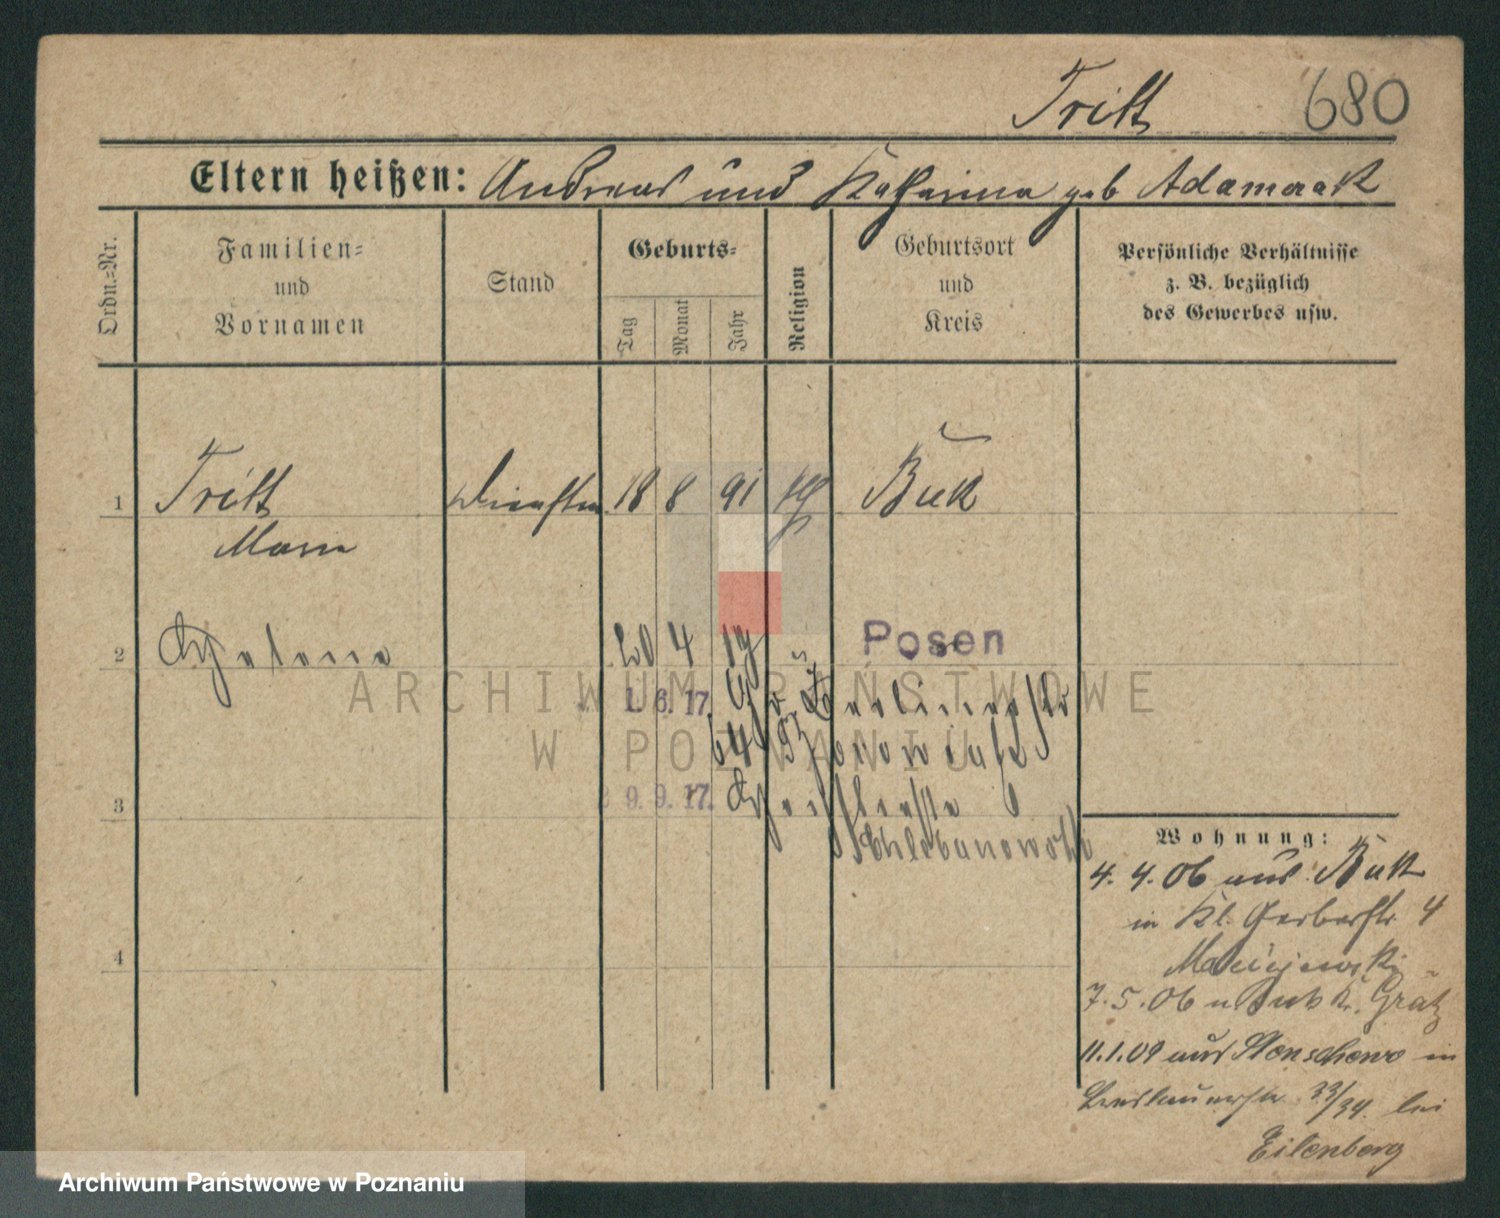 Tritt 680
Eltern heißen: Andreas und Katharina geb Adamczak
Ordn.-Nr.
Familien-
und
Vornamen
Stand
Geburts-
Tag
Monat
Jahr
Religion
Geburtsort
und
Kreis
Persönliche Verhältnisse
z. B. bezüglich
des Gewerbes usw.
1 Tritt 18 8 91 Buk
Marie
2 Helene 20 4 17 Posen
ARCHIWUM PAŃSTWOWE
W POZNANIU
1. 6. 17.
3 9. 9. 17.
Chlebanowski
4
Wohnung:
4. 4. 06 aus Buk
in Kl. Gerberstr 4
Maciejewski
7. 5. 06 n Buk Kr. Grätz
11.1.09 aus Stenschewo in
Breslauerstr 33/34 bei
Eilenberg
Archiwum Państwowe w Poznaniu